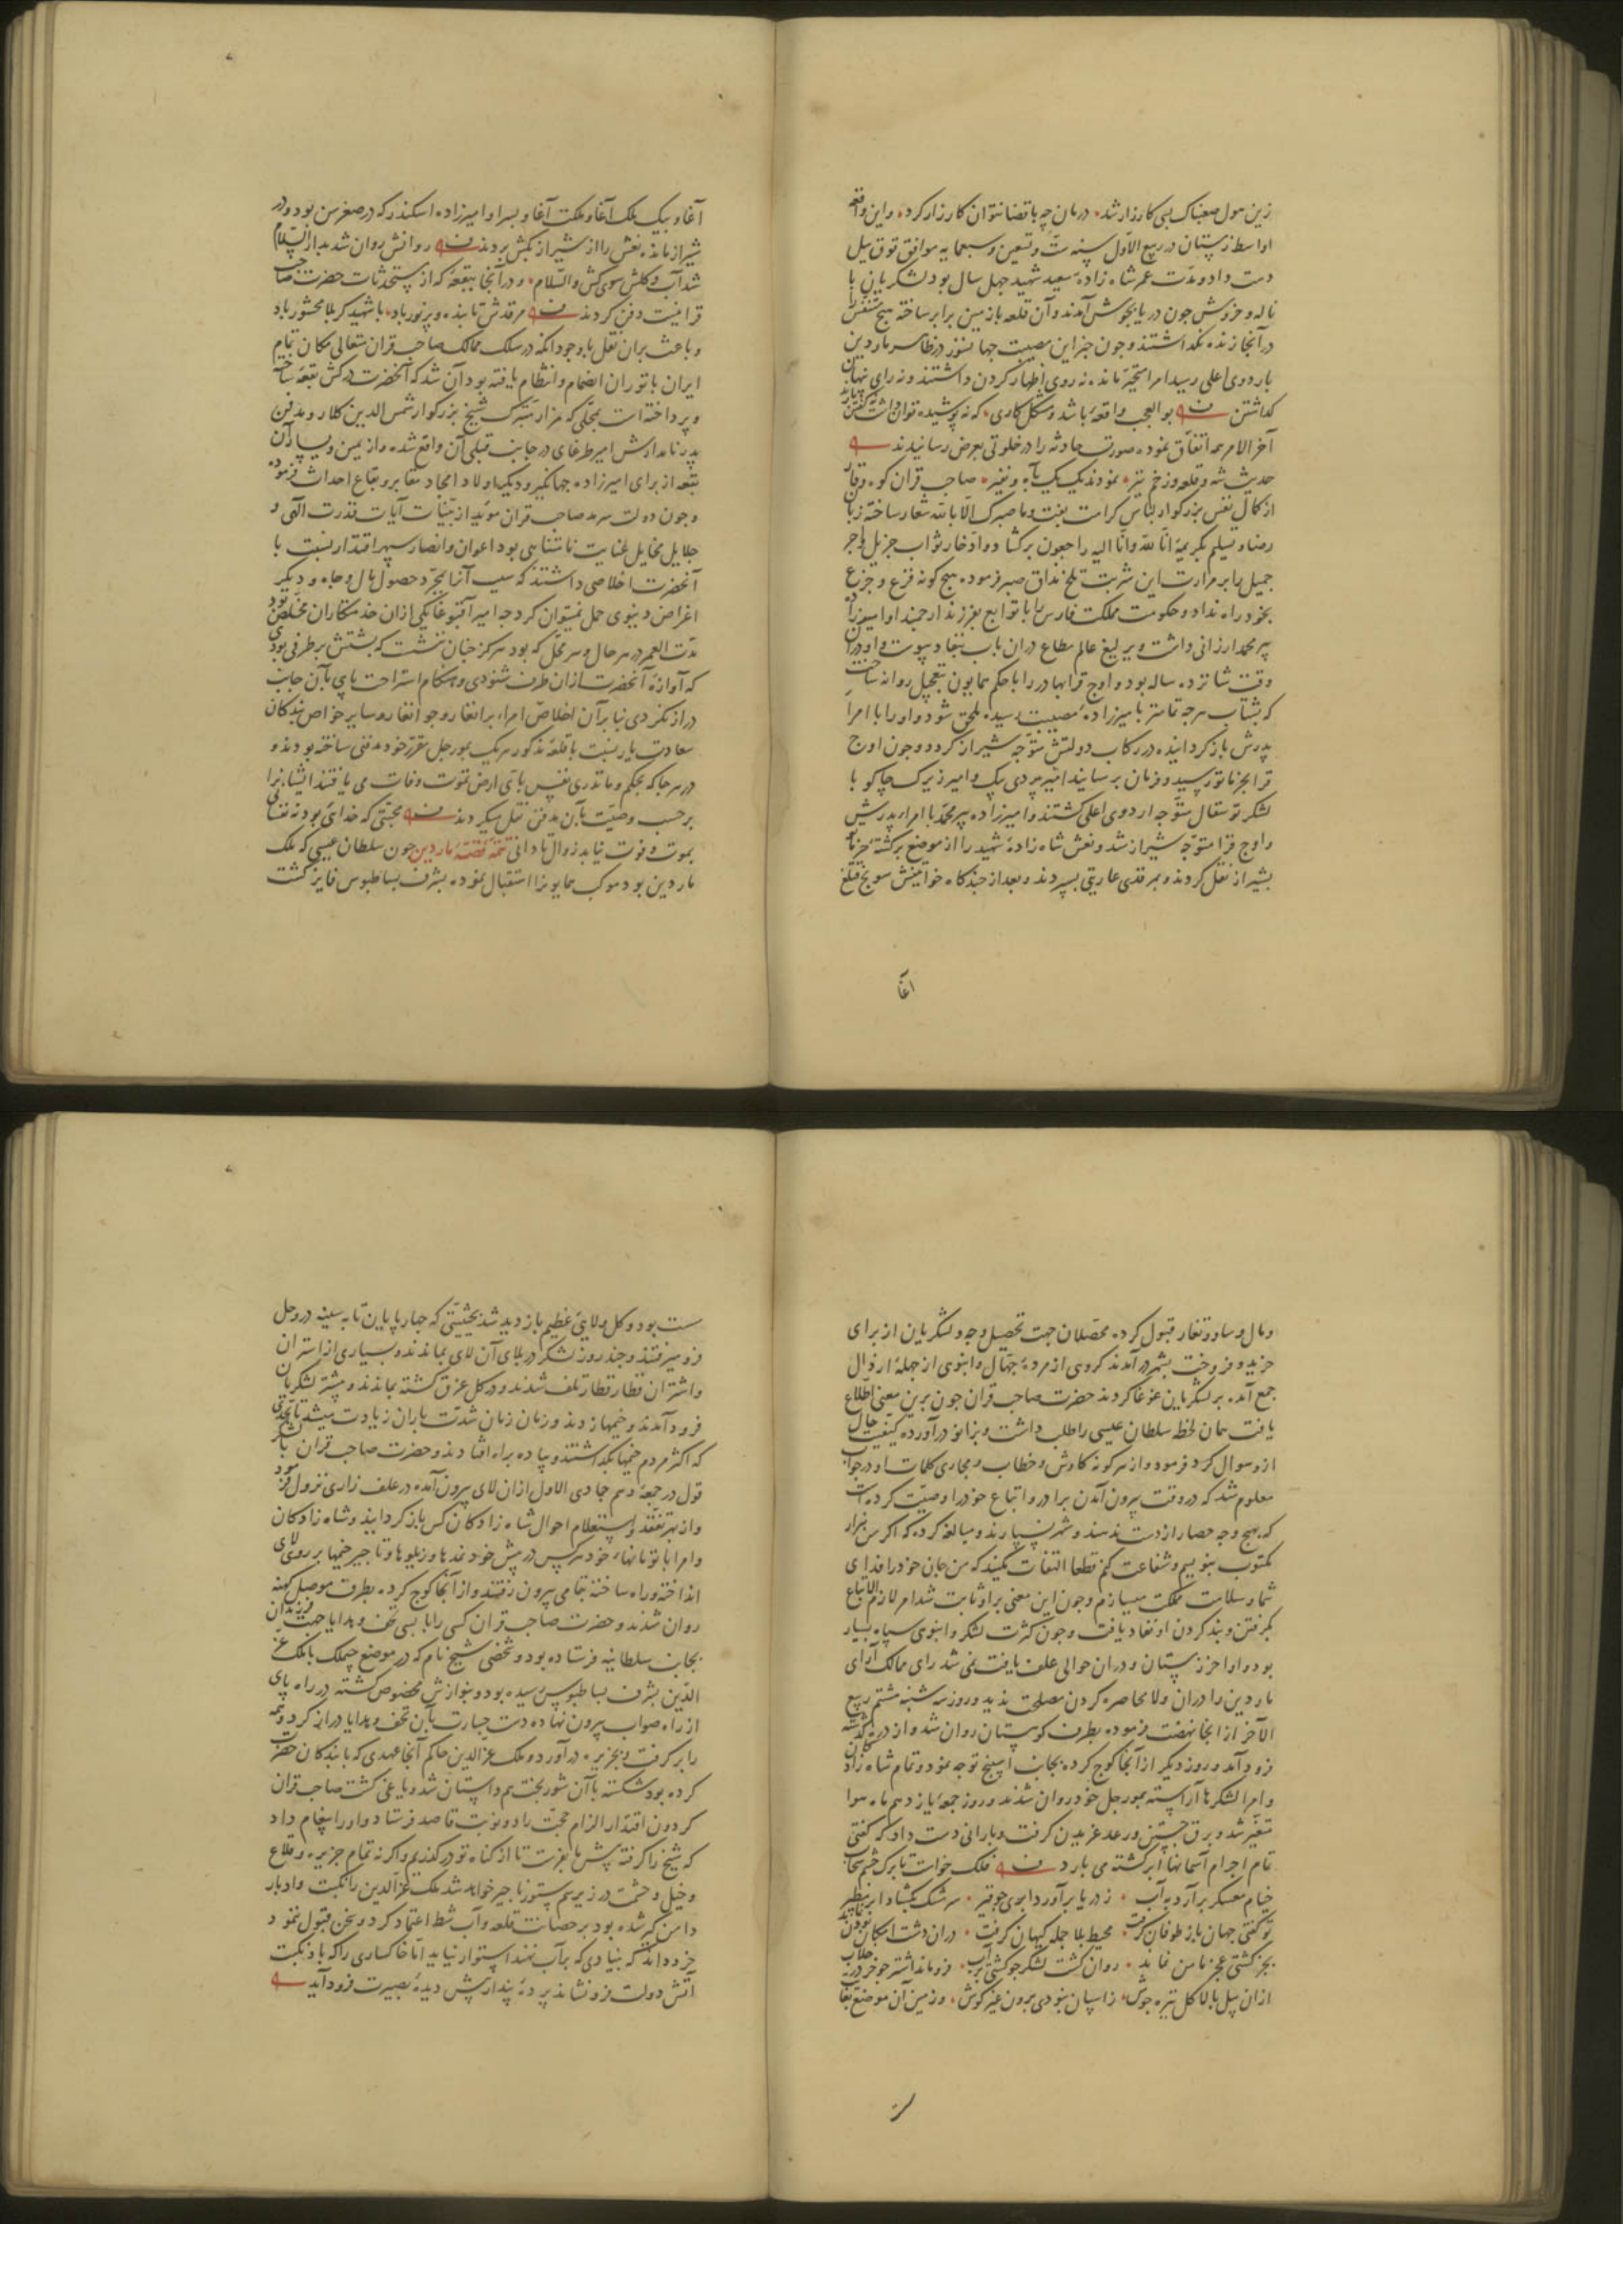 زین هول صعبناک بسی کارزار شد درمان چه با قضا نتوان کارزار کرد و این واقعه
اواسط زمستان در ربیع الاول سنه ست و تسعین و سبعمایه موافق توق ییل
دست داد و مدت عمر شاه زاده سعید شهید چهل سال بود لشکریان با
ناله و خروش چون دریا بجوش آمدند و آن قلعه با زمین برابر ساخته هیچ متنفس را
در آنجا زنده نگذاشتند و چون خبر این مصیبت جهانسوز در ظاهر ماردین
باردوی اعلی رسید امرا متحیر مانده نه روی اظهار کردن داشتند و نه رای نهان
گذاشتن بوالعجب واقعهٔ باشد و مشکل کاری که نه پوشیده توان داشت نه گفتن یارند
آخر الامر همه اتفاق نموده صورت حادثه را در خلوتی بعرض رسانیدند
حدیث شه و قلعه و زخم تیر نمودند یک یک بآه و نفیر صاحب قران کوه وقار
از کمال نفس بزرگوار لباس کرامت بفت و ما صبرک الا بالله شعار ساخته زبان
رضا و تسلیم بکریمهٔ انا لله و انا الیه راجعون برگشاد و ادخار ثواب جزیل و اجر
جمیل را بر مرارت این شربت تلخ مذاق صبر فرموده هیچ گونه فزع و جزع
بخود راه نداد و حکومت مملکت فارس را با توابع بفرزند ارجمند او امیرزاده
پیر محمد ارزانی داشت و یرلیغ عالم مطاع دران باب بنفاد پیوست و او دران
وقت شانزده ساله بود و اوج قرا بهادر را با حکم همایون بتعجیل روانه ساخت
که بشتاب هرچه تمامتر بامیرزادهٔ مصیبت رسیده ملحق شود و او را با امرا
پدرش باز گردانیده در رکاب دولتش متوجه شیراز گردد و چون اوج
قرا بخرماتو رسید و فرمان برسانید امیر بیردی بیک و امیر زیرک چاکو با
لشکر توسقال متوجه اردوی اعلی گشتند و امیرزاده پیر محمد با امراء پدرش
و اوج قرا متوجه شیراز شد و نعش شاه زادهٔ شهید را از موضع برگشته خرماتو
بشیراز نقل کردند و بمرقدی عاریتی بسپردند و بعد از چندگاه خواتینش سونج قتلغ
اغا
آغا و بیک ملک آغا و ملکت آغا و پسر او امیرزاده اسکندر که در صغر سن بود و در
شیراز مانده نعش را از شیراز بکش بردند روانش روان شد بدار السلام
شد آب و گلش سوی کش والسلام و در آنجا ببقعهٔ که از مستحدثات حضرت صاحب
قرانیست دفن کردند مرقدش تابنده و پرنور باد با شهید کربلا محشور باد
و باعث بران نقل با وجود آنکه در سلک ممالک صاحب قران متعالی مکان تمام
ایران با توران انضمام و انتظام یافته بود آن شد که آنحضرت در کش بقعهٔ ساخته
و پرداخته است بمحلی که مزار متبرک شیخ بزرگوار شمس الدین کلار و مدفن
پدر نامدارش امیر طرغای در جانب قبلی آن واقع شده و از یمین و یسار آن
بقعه از برای امیرزاده جهانگیر و دیگر اولاد امجاد مقابر و بقاع احداث فرموده
و چون دولت سرمد صاحب قران مؤید از بینات آیات قدرت الهی و
جلایل مخایل عنایت نامتناهی بود اعوان و انصار سپهر اقتدار نسبت با
آنحضرت اخلاصی داشتند که سبب آنرا بمجرد حصول مال و جاه و دیگر
اغراض دنیوی حمل نمیتوان کرد چه امیر آقبوغا یکی ازان خدمتکاران مخلص بود
مدت العمر در هر حال و هر محل که بود هرگز چنان ننشست که پشتش برطرفی بودی
که آوازهٔ آنحضرت ازان طرف شنودی و هنگام استراحت پای بآن جانب
دراز نکردی بنابر آن اخلاص امراء برانغار و جوانغار و سایر خواص بندگان
سعادت یار نسبت با قلعهٔ مذکور هر یک بمورچل مقرر خود مدفنی ساخته بودند و
در هر جا که بحکم و ما تدری نفس بای ارض تموت وفات می یافتند ایشانرا
بر حسب وصیت بآن مدفن نقل میکردند محبتی که خدائی بود نه نفسانی
بموت و فوت نیابد زوال تا دانی تتمهٔ قصهٔ ماردین چون سلطان عیسی که ملک
ماردین بود موکب همایونرا استقبال نموده بشرف بساطبوس فایز گشت
و مال و ساوری و تغار قبول کرده محصلان جهت تحصیل وجوه و لشکریان از برای
خرید و فروخت بشهر درآمدند گروهی از مردهٔ جهال و انبوهی از جملهٔ ارذال
جمع آمده بر لشکریان غوغا کردند حضرت صاحب قران چون برین معنی اطلاع
یافت همان لحظه سلطان عیسی را طلب داشت و بزانو درآورده کیفیت حال
ازو سوال کرد فرمود و از هر گونه کاوش و خطاب و مجاری کلمات او در جواب
معلوم شد که در وقت بیرون آمدن برادر و اتباع خود را وصیت کرده است
که بهیچ وجه حصار از دست ندهند و شهر نسپارند و مبالغه کرده که اگر من هزار
مکتوب بنویسم و شفاعت کنم قطعا التفات نکنید که من جان خود را فدای
شما و سلامت مملکت میسازم و چون این معنی برو ثابت شد امر لازم الاتباع
بگرفتن و بند کردن او نفاد یافت و چون کثرت لشکر و انبوهی سپاه بسیار
بود و اواخر زمستان و دران حوالی علف یافت نمی شد رای ممالک آرای
ماردین را دران ولا محاصره کردن مصلحت ندید و روز سه شنبه هشتم ربیع
الآخر از انجا نهضت فرموده بطرف کوهستان روان شد و از دربند گذشته
فرود آمد و روز دیگر از آنجا کوچ کرده بجانب اسپنج توجه نمود و تمام شاه زادگان
و امرا لشکرها آراسته بمورچل خود روان شدند و روز جمعه یازدهم ماه هوا
متغیر شد و برق جستن و رعد غریدن گرفت و بارانی دست داد که گفتی
تمام اجرام آسمانها ابر گشته می بارد فلک خواست تا برکشد سحاب
خیام معسکر برآرد به آب ز دریا برآورد ابری چو قیر سرشک بگشاد ابر مطیر
تو گفتی جهان باز طوفان گرفت محیط بلا جمله گیهان گرفت دران دشت امکان بودن نماند
بجز کشتی عجز مامن نماند روان گشت لشکر چو کشتی بر آب فرومانده اشتر چو خر در خلاب
ازان سیل بالا گل تیره جوش ز اسپان نبودی برون غیر گوش و زمین آن موضع بغایت
ست
ست بود و گل ولایی عظیم بازدید شد بحیثیتی که چارپایان تا به سینه در وحل
فرو میرفتند و چند روز لشکر در بلای آن لای بماندند و بسیاری از استران
و اشتران قطار قطار تلف شدند و در گل غرق گشته بماندند و بیشتر لشکریان
فرود آمدند و خیمها زدند و زمان زمان شدت باران زیادت میشد تا بحدی
که اکثر مردم خیمها بگذاشتند و پیاده براه افتادند و حضرت صاحب قران با لشکر
قول در جمعه دهم جمادی الاول ازان لای بیرون آمده در علف زاری نزول فرمود
و از بهر تفقد و استعلام احوال شاه زادگان کس باز گردانید و شاه زادگان
و امرا با تومانهاء خود هر کس در پیش خود نمدها و زیلوها و تاجیر خیمها بر روی لای
انداخته و راه ساخته بتمامی بیرون رفتند و از آنجا کوچ کرده بطرف موصل کهنه
روان شدند و حضرت صاحب قران کسی را با بسی تحف و هدایا جهت فرزندان
بجانب سلطانیه فرستاده بود و شخصی شیخ نام که در موضع چملک با ملک عز
الدین بشرف بساطبوس رسیده بود و بنوازش مخصوص گشته در راه پای
از راه صواب بیرون نهاده دست جسارت بآن تحف و هدایا دراز کرد و همه
را برگرفت و بجزیره درآورد و ملک عزالدین حاکم آنجا عهدی که با بندگان حضرت
کرده بود شکسته با آن شوربخت همداستان شد و یاغی گشت صاحب قران
گردون اقتدار الزام حجت را دو نوبت قاصد فرستاد و او را پیغام داد
که شیخ را گرفته پیش ما بفرست تا از گناه تو درگذریم و اگر نه تمام جزیره و قلاع
و خیل و حشمت در زیر سم ستور ناچیز خواهد شد ملک عزالدین را نکبت و ادبار
دامن گیر شده بود بر حصانت قلعه و آب شط اعتماد کرد و سخن قبول ننمود و
خرد داند که بنیادی که بر آب نهند استوار نیاید اما خاکساری را که باد نکبت
آتش دولت فرو نشاند پردهٔ پندار پیش دیدهٔ بصیرت فرود آید